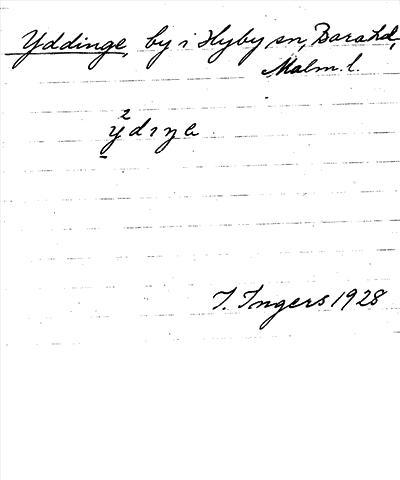 Yddinge, by i Hyby sn, Bara hd,
Malm. l.
2
ydıŋe
I. Ingers 1928